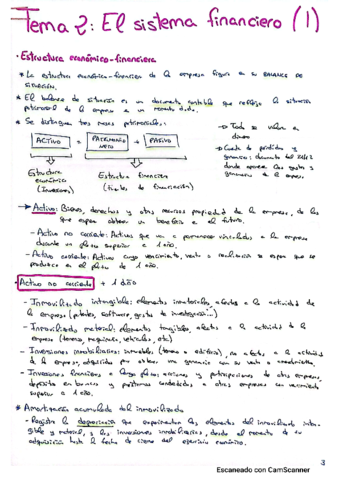 Tema 2: El sistema financiero (1)
· Estructura económico-financiera
* La estructura económico-financiera de la empresa figura en su BALANCE DE
SITUACIÓN.
* El balance de situación es un documento contable que refleja la situación
patrimonial de la empresa en un momento dado.
* Se distinguen tres masas patrimoniales:
ACTIVO = PATRIMONIO NETO + PASIVO
Estructura económica (Inversiones)
Estructura financiera
→ Todo se valora en dinero
→ Cuenta de pérdidas y ganancias: documento del
donde aparecen los gastos y ganancias de la empresa.
→ Activo: Bienes, derechos y otros recursos propiedad de la empresa, de los
que espera obtener un beneficio en el futuro.
- Activo no corriente: Activos que van a permanecer vinculados a la empresa
durante un plazo superior a 1 año.
- Activo corriente: Activos cuyo vencimiento, venta o realización se espera que se
produzca en el plazo de 1 año.
Activo no corriente + 1 año
- Inmovilizado intangible: elementos inmateriales, afectos a la actividad de
la empresa (patentes, software, gastos de investigación...)
- Inmovilizado material: elementos tangibles, afectos a la actividad de la
empresa (terreno, maquinaria, vehículos, etc)
- Inversiones inmobiliarias: inmuebles (terreno o edificios), no afectos a la actividad
de la empresa, adquiridos para obtener una ganancia con su venta o arrendamiento.
- Inversiones financieras a largo plazo: acciones y participaciones de otras empresas,
depósitos en bancos y préstamos concedidos a otras empresas con vencimiento
superior a 1 año.
* Amortización acumulada del inmovilizado
- Registra la depreciación que experimentan los elementos del inmovilizado intan-
gible y material, y las inversiones inmobiliarias, desde el momento de su
adquisición hasta la fecha de cierre del ejercicio económico.
3
Escaneado con CamScanner